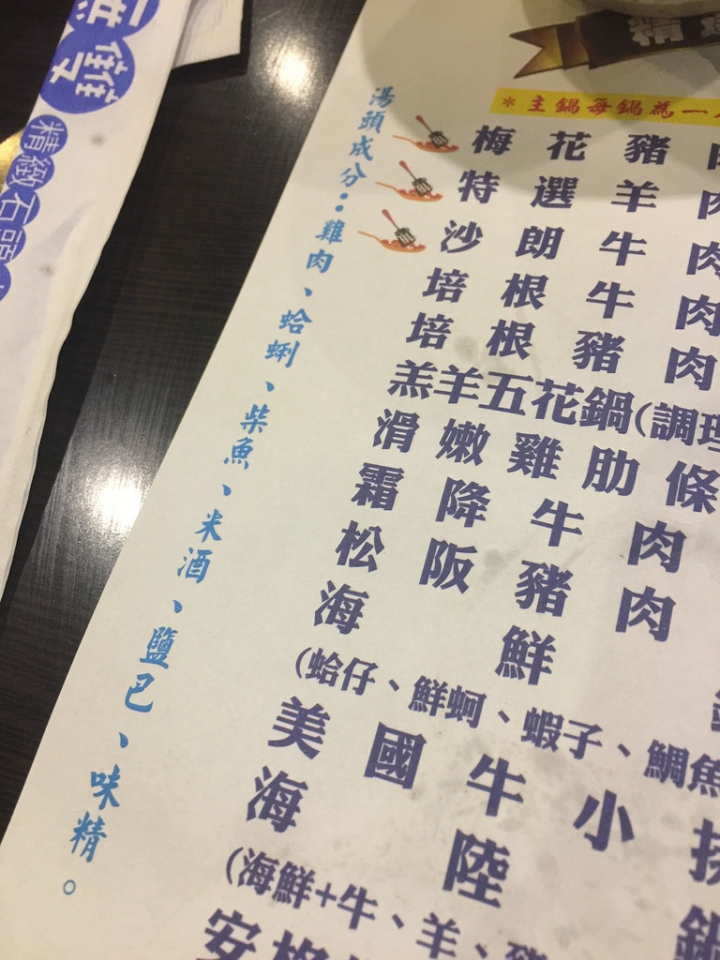 無雙
精緻石頭火
精
*主鍋每鍋為一人
湯頭成分：雞肉、蛤蜊、柴魚、米酒、鹽巴、味精。
梅花豬肉
特選羊肉
沙朗牛肉
培根牛肉
培根豬肉
羔羊五花鍋(調理
滑嫩雞肋條
霜降牛肉
松阪豬肉
海鮮
(蛤仔、鮮蚵、蝦子、鯛魚
美國牛小排
海陸鍋
(海鮮+牛、羊、豬
安格